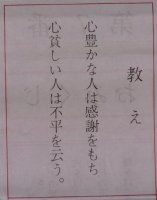 教え
心豊かな人は感謝をもち
心貧しい人は不平を云う。